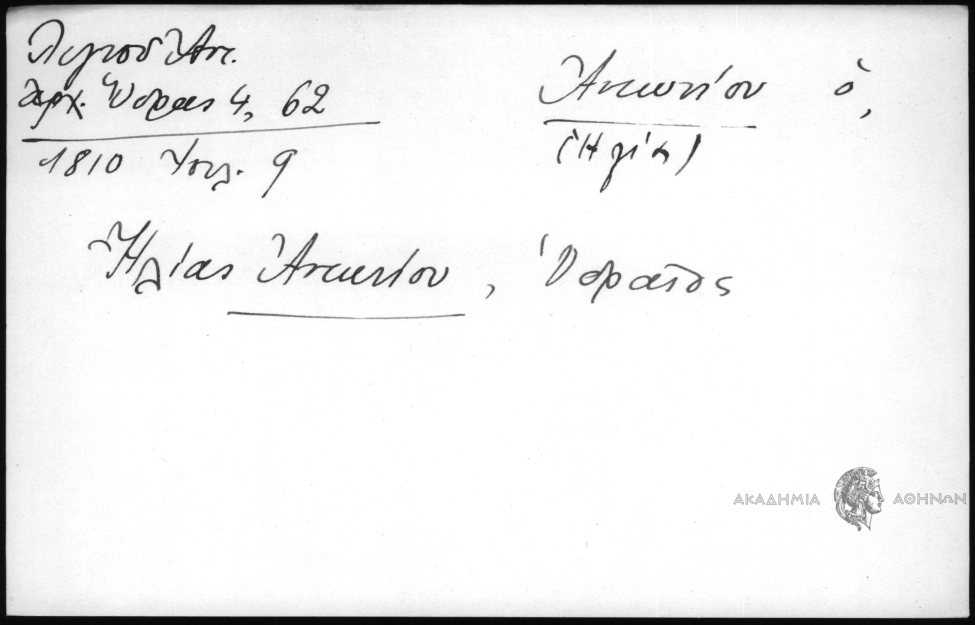 Λιγνοῦ Ἀντ.
Ἀρχ. Ὕδρας 4, 62
1810 Ἰουλ. 9
Ἀντωνίου ὁ,
(Ἠλία)
Ἠλίας Ἀντωνίου, Ὑδραῖος
ΑΚΑΔΗΜΙΑ ΑΘΗΝΩΝ